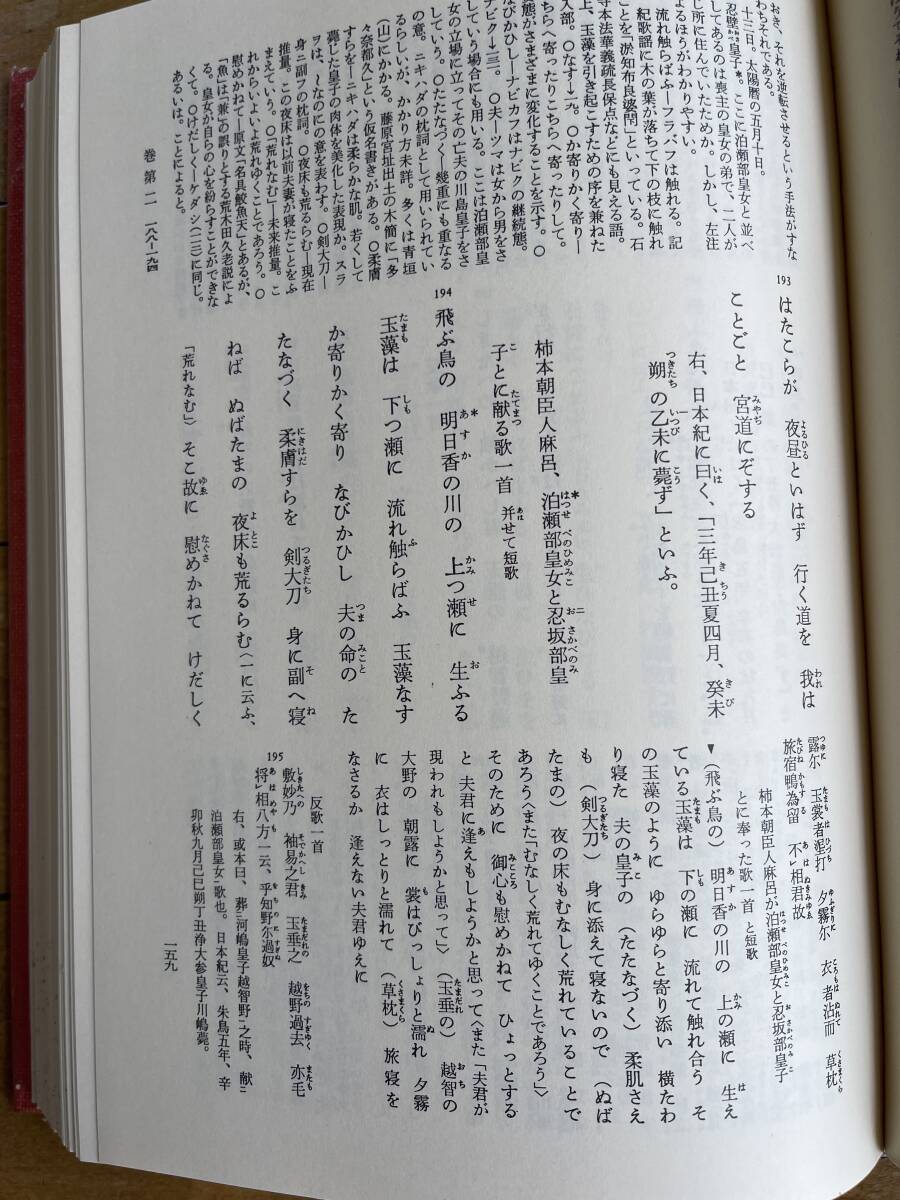 おき、それを逆転させるという手法がすな
わちそれである。
十三日。太陽暦の五月十日。
忍壁皇子*。ここに泊瀬部皇女と並べ
してあるのは喪主の皇女の弟で、二人が
じ所に住んでいたためか。しかし、左注
よるほうがわかりやすい。
流れ触らばふ―フラバフは触れる。記
紀歌謡に木の葉が落ちて下の枝に触れ
ことを「淤知布良婆閇」といっている。石
寺本法華義疏長保点などにも見える語。
上、玉藻を引き起こすための序を兼ねた
入部。〇なす→一九。〇か寄りかく寄り―
ちらへ寄ったりこちらへ寄ったりして。
なびかひし―ナビカフはナビクの継続態。
態がさまざまに変化することを示す。〇
ナビク→三一。〇夫―ツマは女から男をさ
していう場合にも用いる。ここは泊瀬部皇
女の立場に立ってその亡夫の川島皇子をさ
していう。〇たたなづく―幾重にも重なる
の意。ニキハダの枕詞として用いられてい
るらしいが、かかり方未詳。多くは青垣
(山)にかかる。藤原宮址出土の木簡に「多
々奈都久」という仮名書きがある。〇柔膚
すらを―ニキハダは柔らかな肌。若くして
薨じた皇子の肉体を美化した表現か。スラ
ヲは、〜なのにの意を表わす。〇剣大刀―
身ニ副フの枕詞。〇夜床も荒るらむ―現在
推量。この夜床は以前夫妻が寝たことをふ
まえていう。〇「荒れなむ」―未来推量。こ
れからいよいよ荒れゆくことであろう。〇
慰めかねて―原文「名具鮫魚天」とあるが、
「魚」は「兼」の誤りとする荒木田久老説によ
る。皇女が自らの心を紛らすことができな
くて。〇けだしく―ケダシ(一一二)に同じ。
あるいは。ことによると。
巻第二　一八八―一九四
193
はたこらが　夜昼といはず　行く道を　我は
ことごと　宮道にぞする
右、日本紀に曰く、「三年己丑夏四月、癸未
朔の乙未に薨ず」といふ。
柿本朝臣人麻呂、*泊瀬部皇女と忍坂部皇
子とに献る歌一首　并せて短歌
194
飛ぶ鳥の　*明日香の川の　上つ瀬に　生ふる
玉藻は　下つ瀬に　流れ触らばふ　玉藻なす
か寄りかく寄り　なびかひし　夫の命の　た
たなづく　柔膚すらを　剣大刀　身に副へ寝
ねば　ぬばたまの　夜床も荒るらむ〈一に云ふ、
「荒れなむ」〉　そこ故に　慰めかねて　けだしく
露尓　玉裳者埿打　夕霧尓　衣者沾而　草枕
旅宿鴨為留　不レ相君故
柿本朝臣人麻呂が泊瀬部皇女と忍坂部皇子
とに奉った歌一首　と短歌
▼(飛ぶ鳥の)　明日香の川の　上の瀬に　生え
ている玉藻は　下の瀬に　流れて触れ合う　そ
の玉藻のように　ゆらゆらと寄り添い　横たわ
り寝た　夫の皇子の　(たたなづく)　柔肌さえ
も　(剣大刀)　身に添えて寝ないので　(ぬば
たまの)　夜の床もむなしく荒れていることで
あろう〈また「むなしく荒れてゆくことであろう」〉
そのために　御心も慰めかねて　ひょっとする
と　夫君に逢えもしようかと思って〈また「夫君が
現われもしようかと思って」〉　(玉垂の)　越智の
大野の　朝露に　裳はびっしょりと濡れ　夕霧
に　衣はしっとりと濡れて　(草枕)　旅寝を
なさるか　逢えない夫君ゆえに
反歌一首
195
敷妙乃　袖易之君　玉垂之　越野過去　亦毛
将レ相八方一云、乎知野尓過奴
右、或本曰、葬二河嶋皇子越智野一之時、献二
泊瀬部皇女一歌也。日本紀云、朱鳥五年、辛
卯秋九月己巳朔丁丑浄大参皇子川嶋薨。
一五九